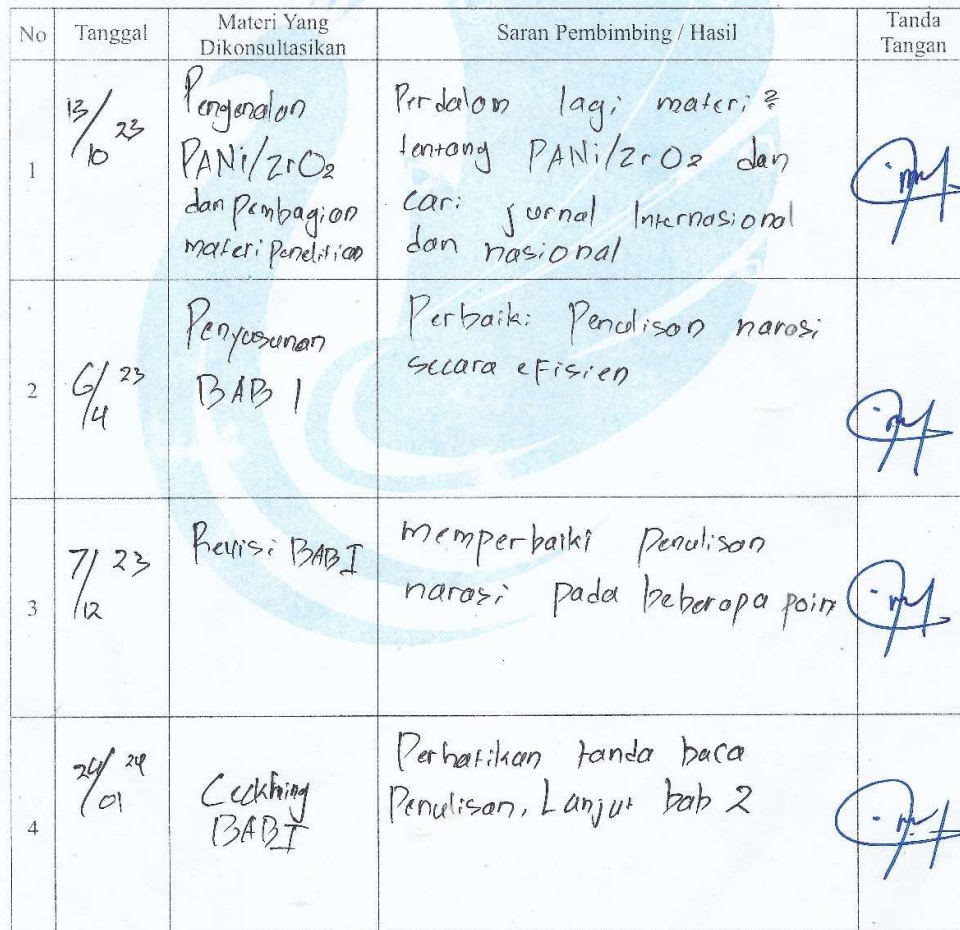 No Tanggal Materi Yang Dikonsultasikan Saran Pembimbing / Hasil Tanda Tangan
1
13/10 23
Pengenalan
PANi/ZrO2
dan pembagian
materi penelitian
Perdalam lagi materi2
tentang PANi/ZrO2 dan
cari jurnal Internasional
dan nasional
2
6/4 23
Penyusunan
BAB I
Perbaiki Penulisan narasi
secara efisien
3
7/12 23
Revisi BAB I
memperbaiki penulisan
narasi pada beberapa poin
4
24/01 24
Ceckhing
BAB I
Perhatikan tanda baca
Penulisan, Lanjut bab 2